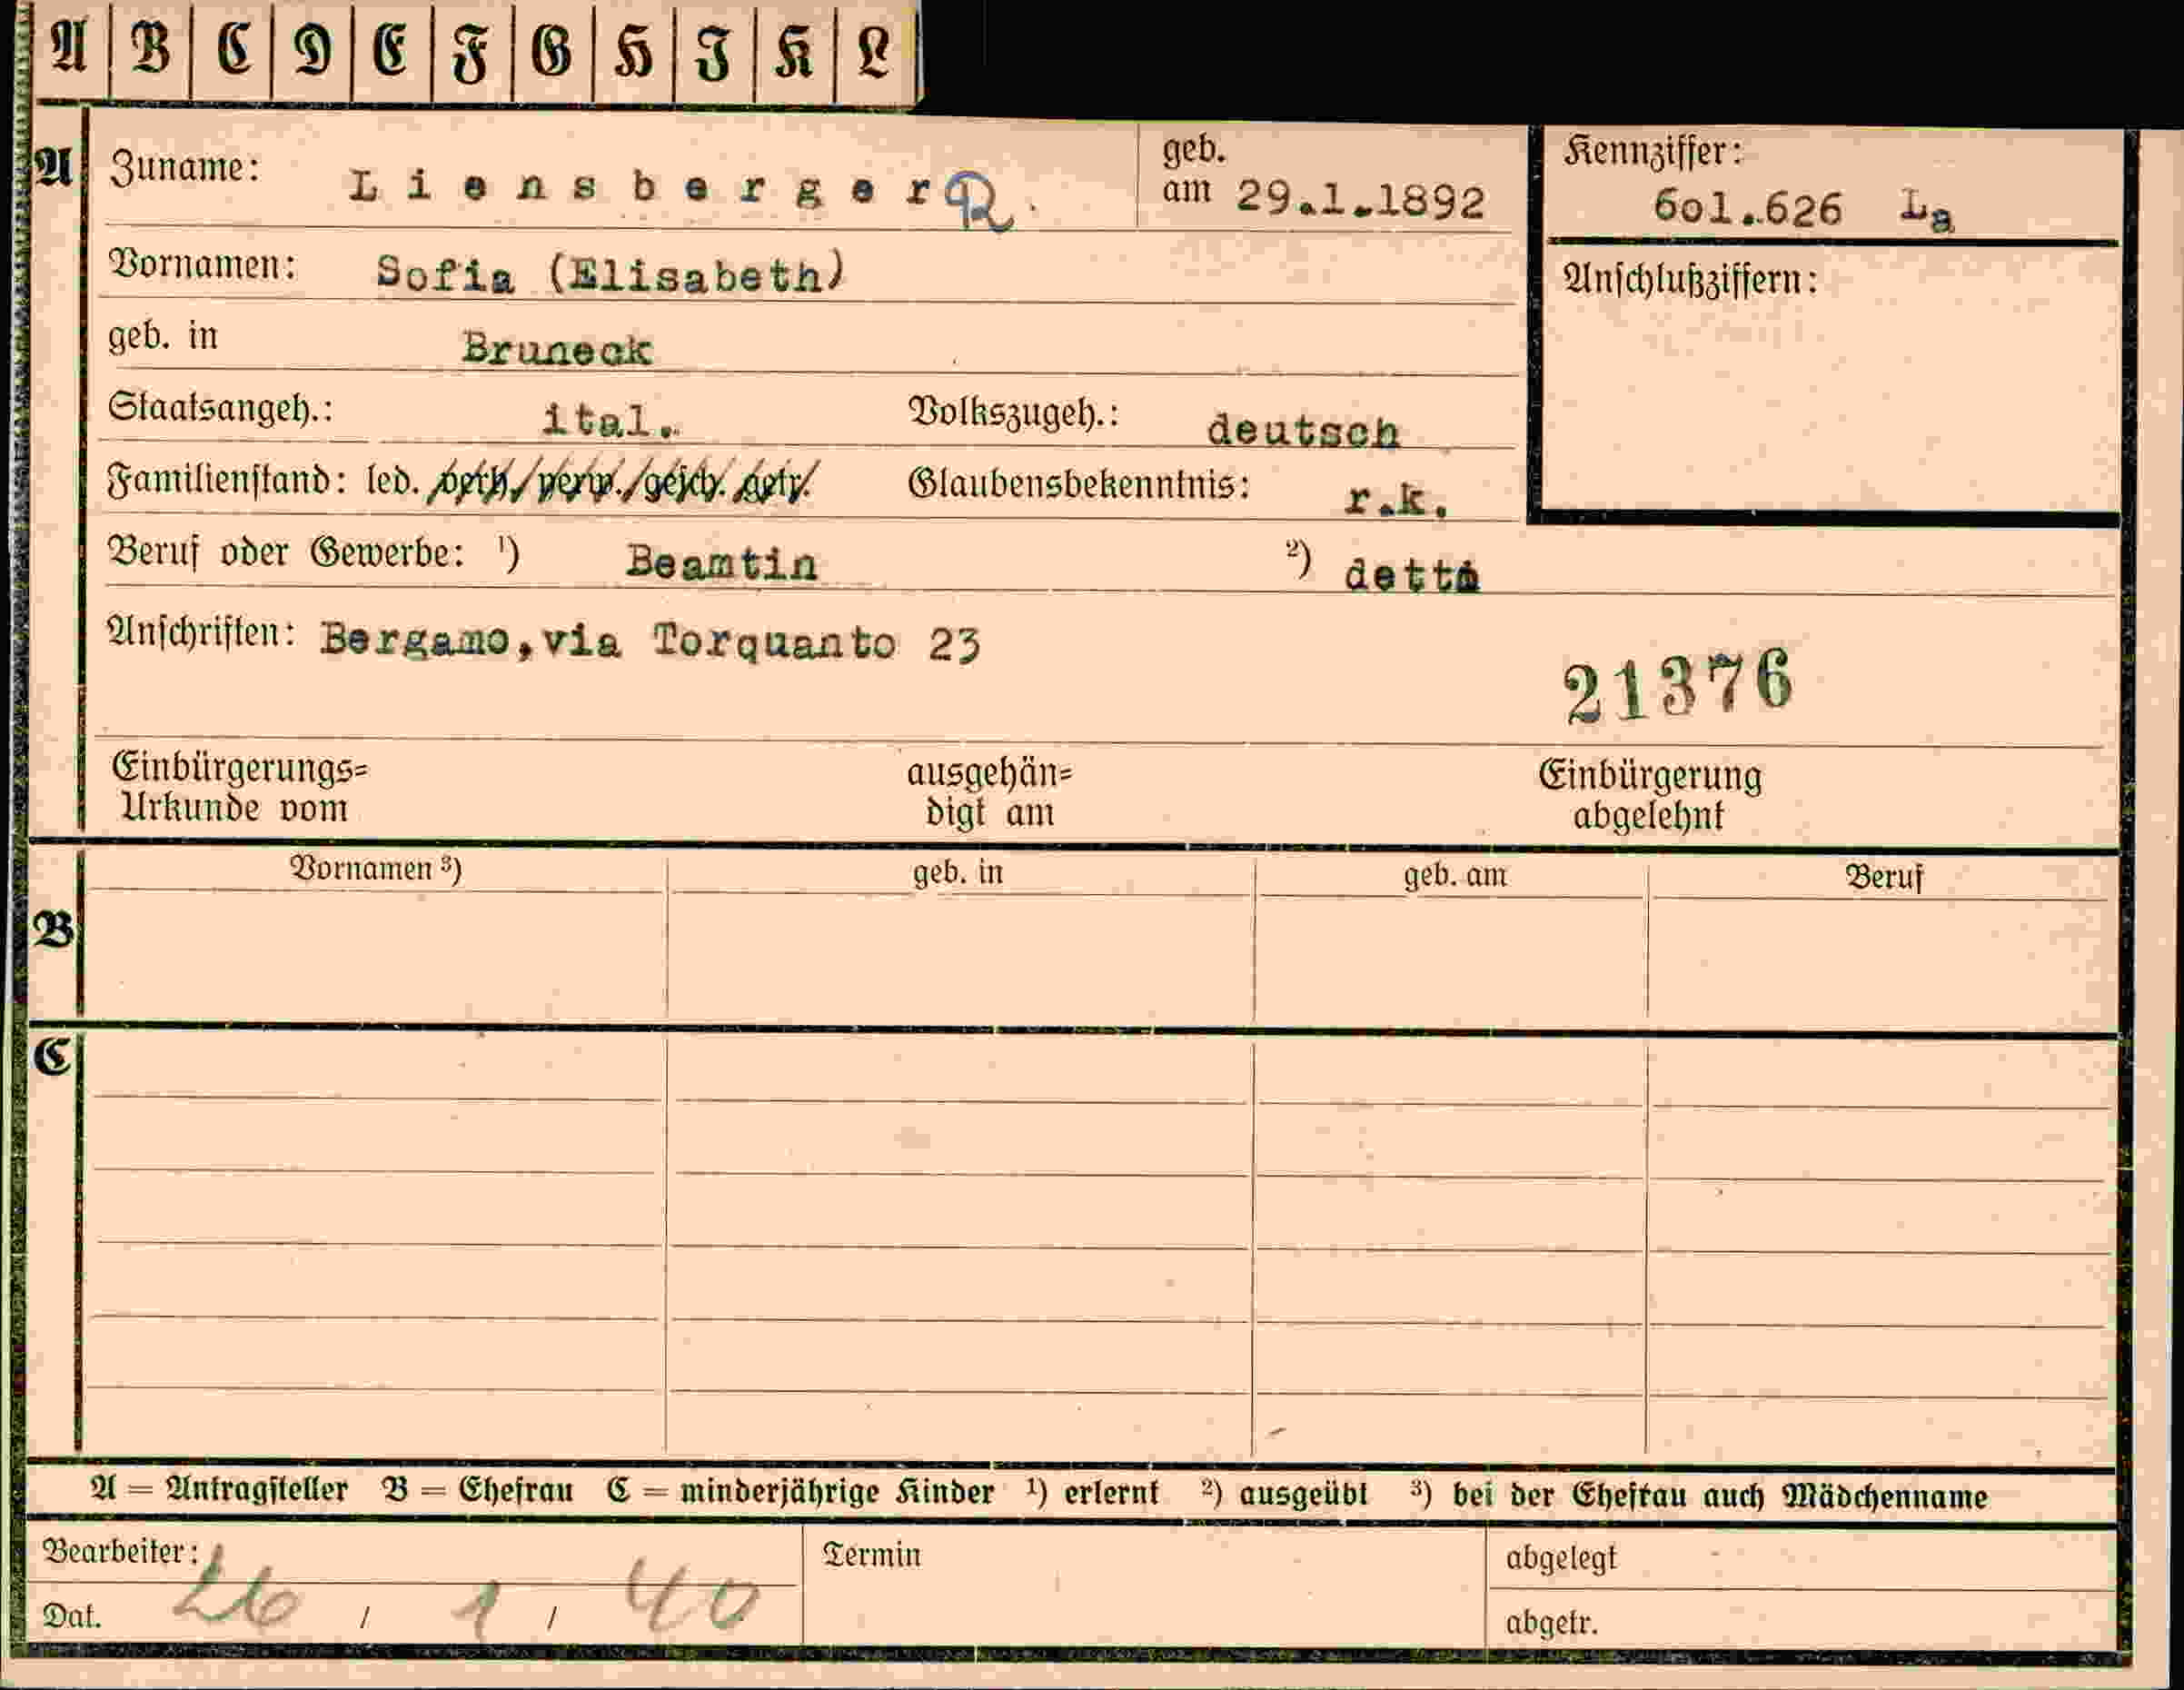 A B C D E F G H J K L
A Zuname: Liensberger R. geb. am 29.1.1892 Kennziffer: 6o1.626 La
Vornamen: Sofia (Elisabeth) Anschlußziffern:
geb. in Bruneck
Staatsangeh.: ital. Volkszugeh.: deutsch
Familienstand: led. /verh./verw./gesch. getr. Glaubensbekenntnis: r.k.
Beruf oder Gewerbe: ¹) Beamtin ²) detto
Anschriften: Bergamo,via Torquanto 23
21376
Einbürgerungs= ausgehän= Einbürgerung
Urkunde vom digt am abgelehnt
Vornamen ³) geb. in geb. am Beruf
B
C
A = Antragsteller B = Ehefrau C = minderjährige Kinder ¹) erlernt ²) ausgeübt ³) bei der Ehefrau auch Mädchenname
Bearbeiter: Termin abgelegt
Dat. 26 / 1 / 40 abgetr.